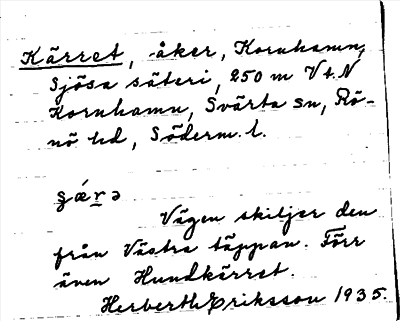 Kärret, åker, Kornhamn,
Sjösa säteri, 250 m V t. N
Kornhamn, Svärta sn, Rö-
nö hd, Söderm. l.
Vägen skiljer den
från Västra täppan. Förr
även Hundkärret.
Herberth Eriksson 1935.